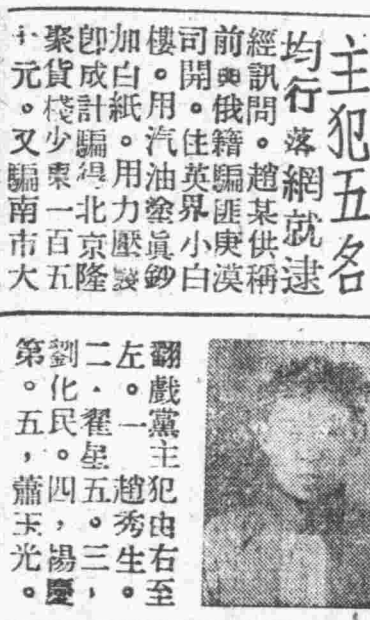 主犯五名
均行落網就逮
經訊問。趙某供稱
前與俄籍騙匪庚漠
司開。住英界小白
樓。用汽油塗眞鈔
加白紙。用力壓裝
卽成計騙得北京隆
聚貨棧少東一百五
十元。又騙南市大
翻戲黨主犯由右至
左。一趙秀生。
二．翟星五。三，
劉化民。四，湯慶
第。五，蕭玉光。